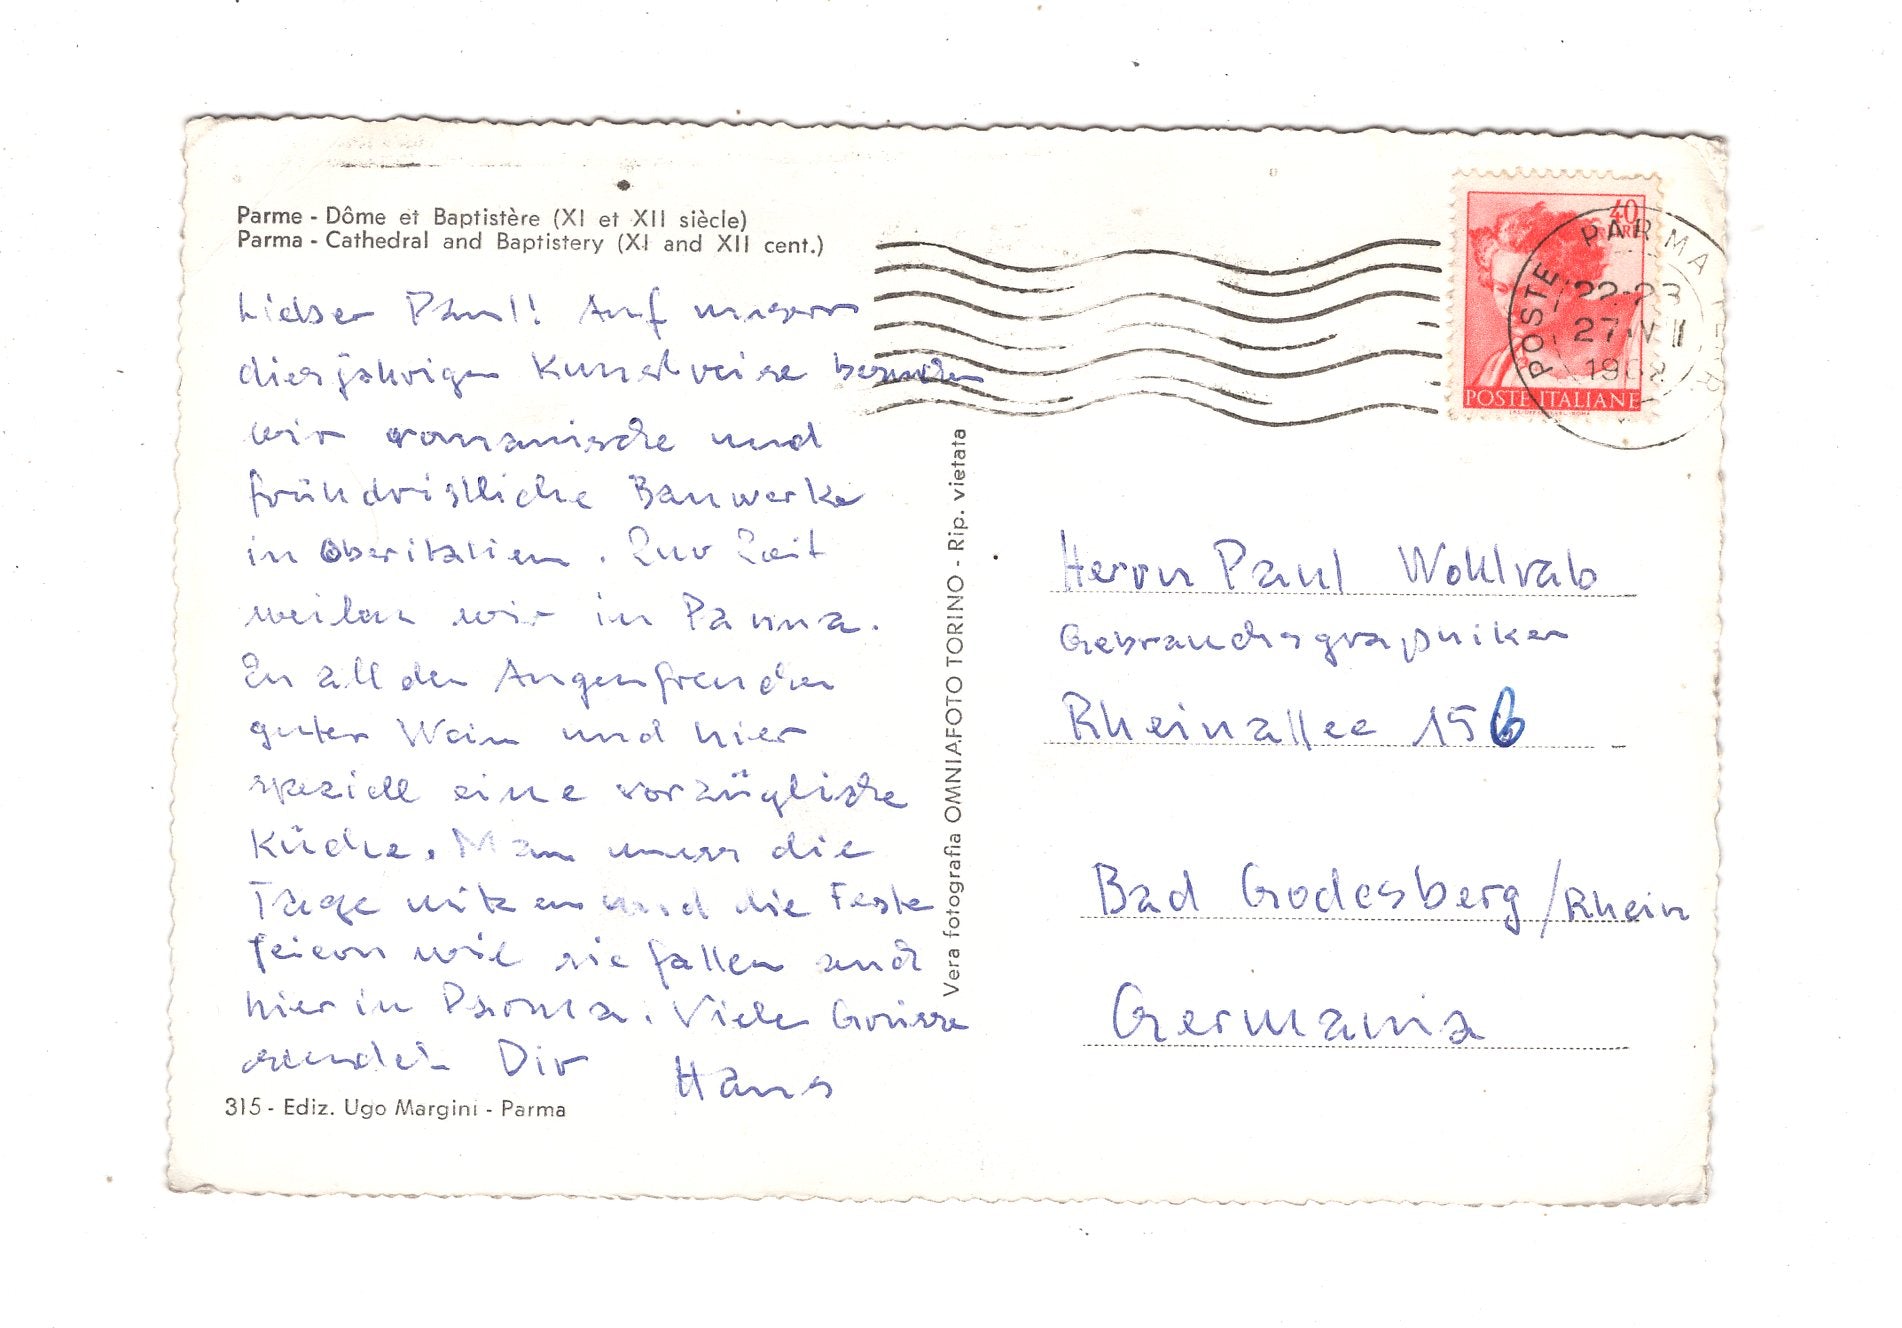 Parme - Dôme et Baptistère (XI et XII siècle)
Parma - Cathedral and Baptistery (XI and XII cent.)
Lieber Paul! Auf unserer
diesjährigen Kunstreise besuchen
wir romanische und
frühchristliche Bauwerke
in Oberitalien. Zur Zeit
weilen wir in Parma.
Zu all den Augenfreuden
guter Wein und hier
speziell eine vorzügliche
Küche. Man muss die
Tage nützen und die Feste
feiern wie sie fallen auch
hier in Parma. Viele Grüsse
sendet Dir Hans
315 - Ediz. Ugo Margini - Parma
Vera fotografia OMNIAFOTO TORINO - Rip. vietata
40
POSTE ITALIANE
POSTE PARMA
22-23
27 IV
Herrn Paul Wohlrab
Gebrauchsgraphiker
Rheinallee 156
Bad Godesberg/Rhein
Germania